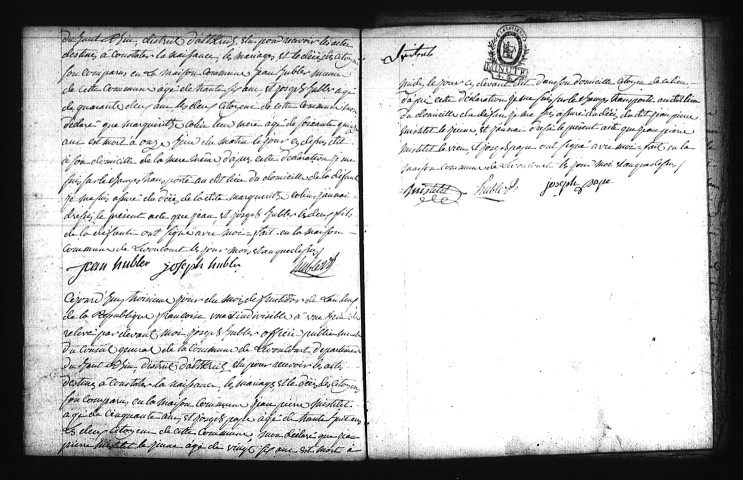 du haut Rhin, district d'altkirch, elu pour recevoir les actes
destinés à constater la naissance, les mariages et le décès des citoyens
son comparus en la maison commune jean hubler
de cette commune agé de trente six ans, et joseph hubler agé
de quarante deux ans les deux citoyens de cette commune mon
déclaré que marguerite colin leur mere agé de soixante quinze
ans est mort à onze heures du matin le jour ci dessus dit
à son domicile de la ditte mere d'apres cette déclaration je me
suis sur le champs transporté au dit lieu du domicile de la défunte
je me suis assuré du décès de la ditte marguerite colin j'en ai
dressé le présent acte que jean, et joseph hubler les deux fils
de la défunte ont signé avec moi fait en la maison
commune de levoncourt les jour mois et an que dessus
jean hubler joseph hubler hubler
Cejourd'huy troisieme jour du mois de fructidor de l'an deux
de la République francoise une et indivisible à une heure de
relevé par devant moi joseph hubler officier public membre
du Conseil général de la commune de Levoncourt département
du haut Rhin, district d'altkirch, elu pour recevoir les actes
destinés à constater la naissance, les mariages et le décès des citoyens
son comparus en la maison commune jean pierre mistelet
agé de cinquante ans, et joseph pape agé de trente huit ans
les deux citoyens de cette commune mon déclaré que jean
pierre mistelet le jeune agé de vingt six ans est mort à
minuit le jour ci devant dit dans son domicile
d'après cette déclaration je me suis sur le champs transporté au dit lieu
du domicile de la défunt je me suis assuré du décès du dit jean pierre
mistelet le jeune et j'en ai dressé le présent acte que jean pierre
mistelet le vieux, et joseph pape ont signé avec moi fait en la
maison commune de Levoncourt les jour mois et an que dessus
mistelet hubler joseph pape